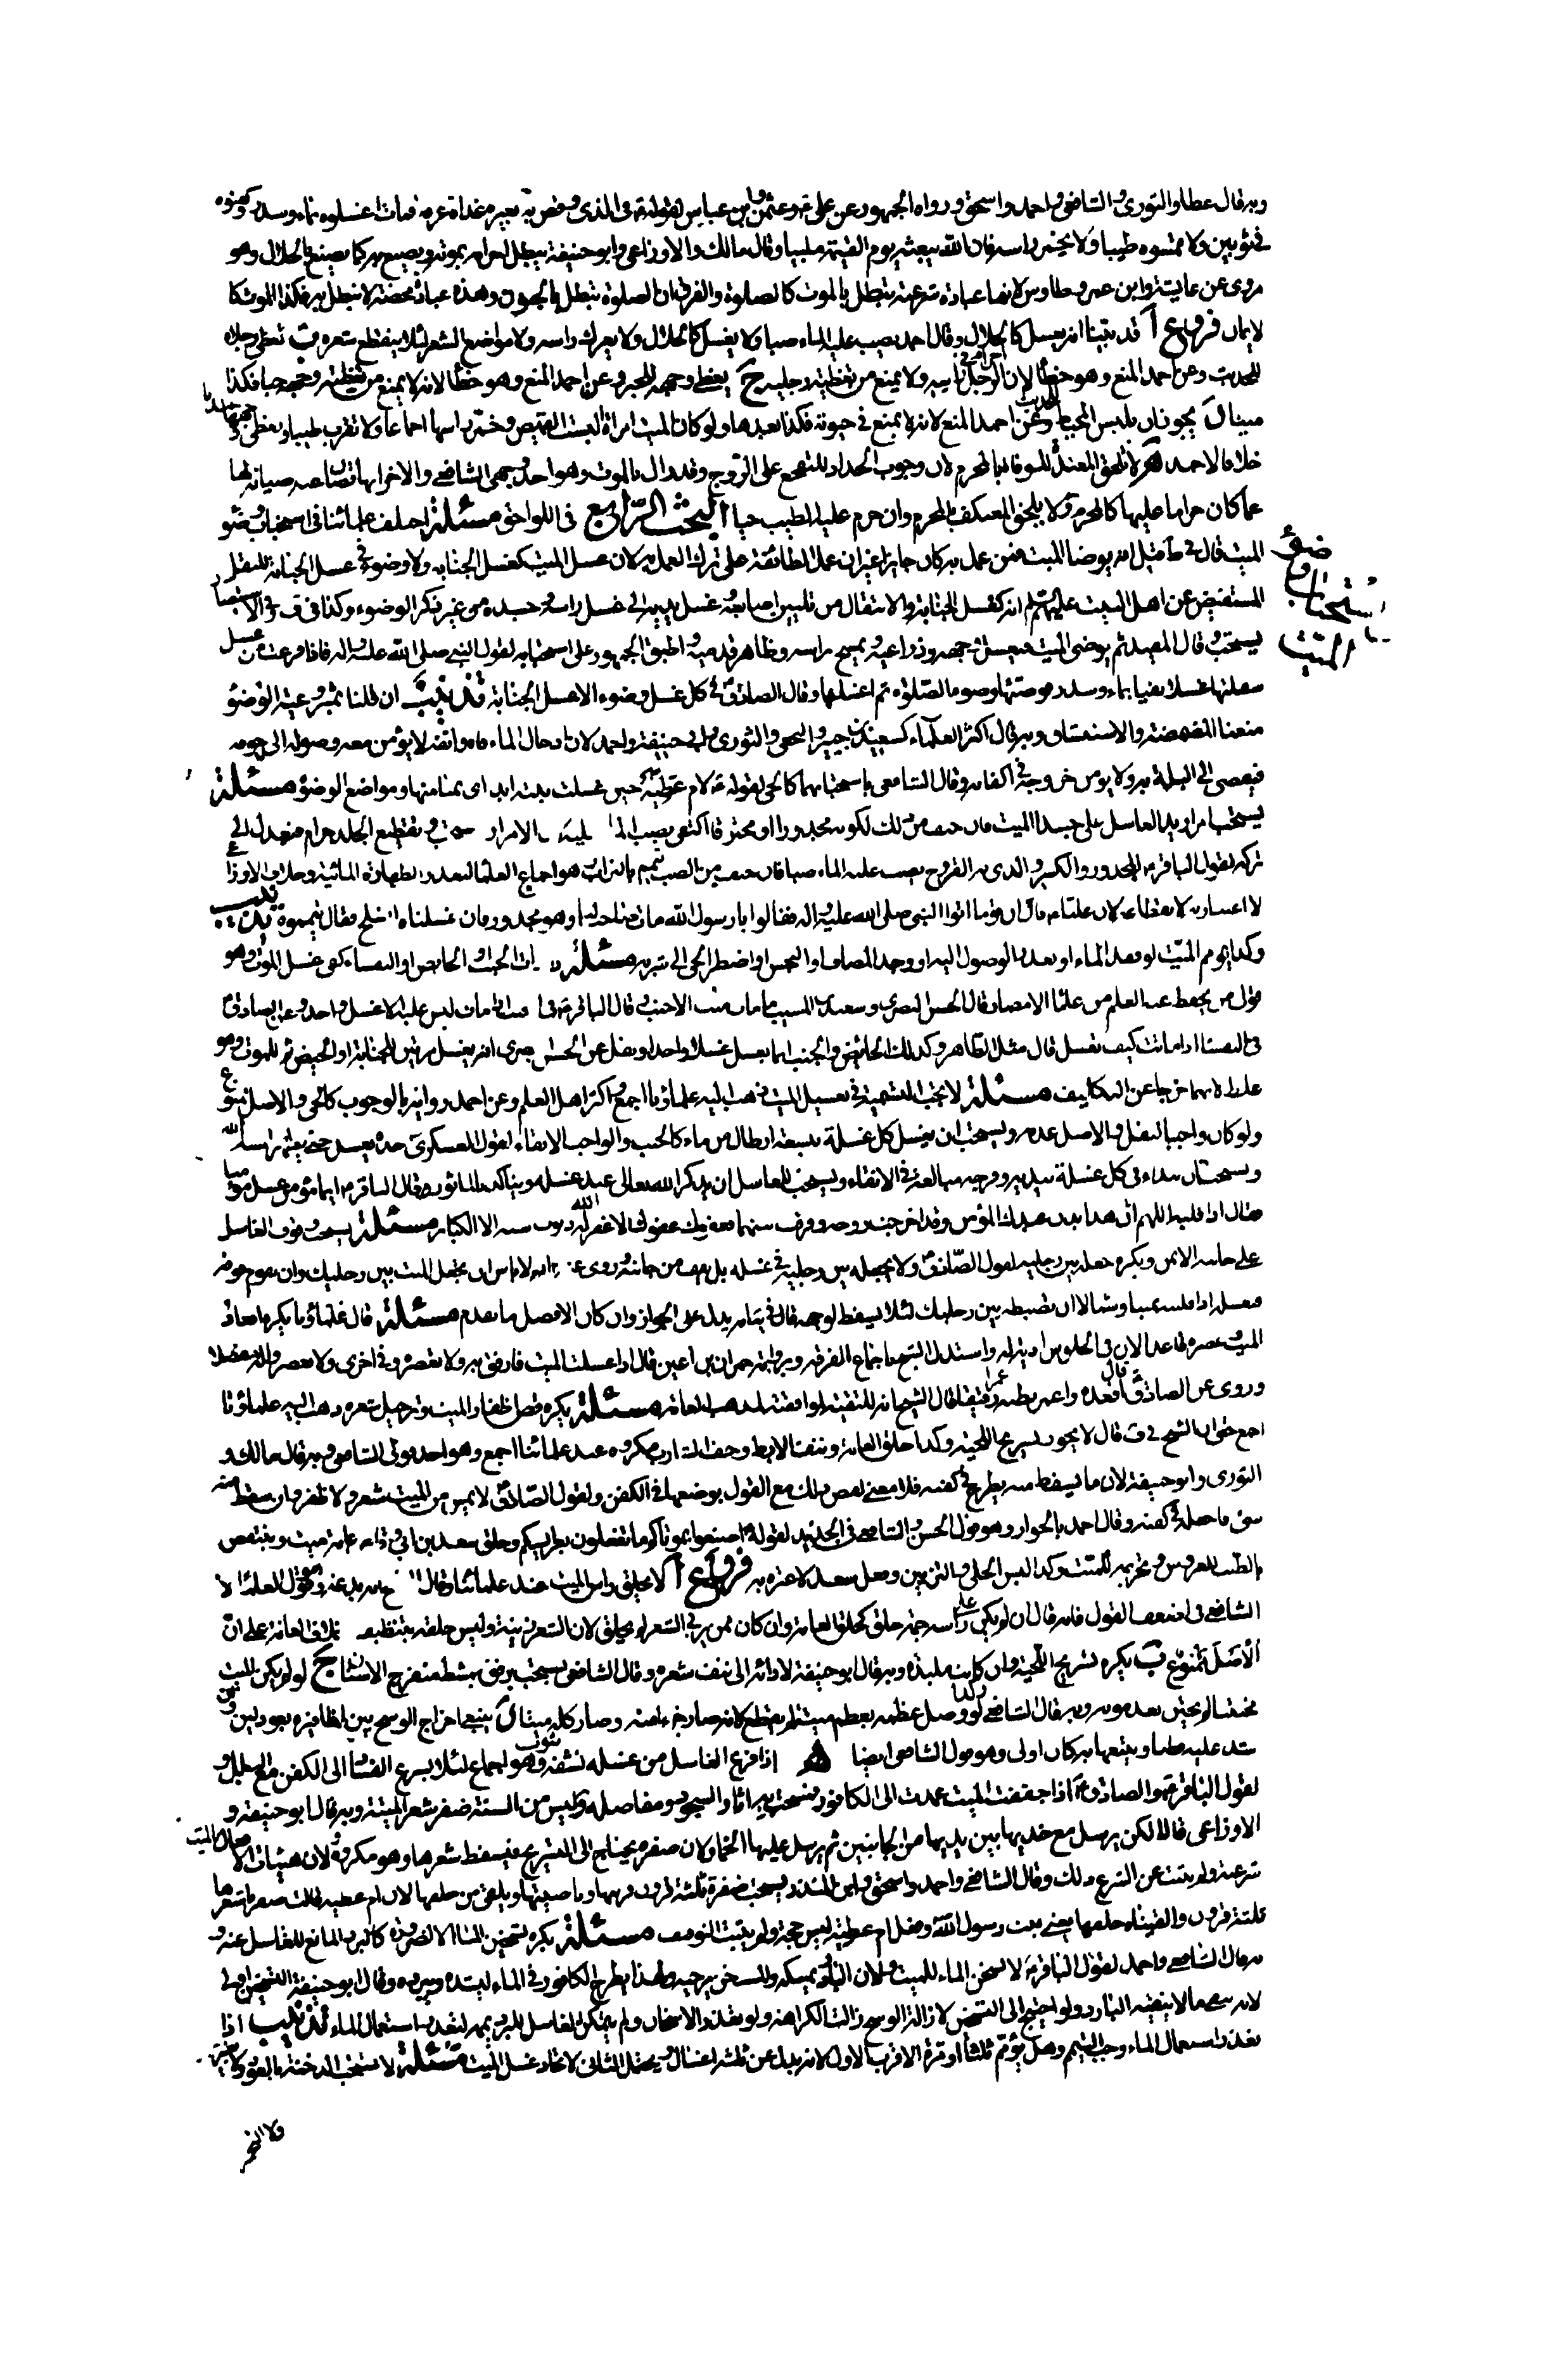 وبه قال عطا والثوري والشافعي واحمد واسحق ورواه الجمهور عن علي ع وعثمن وابن عباس لقوله ع في الذي وقص به بعيره غداة عرفة فمات اغسلوه بماء وسدر وكفنوه
في ثوبين ولا تمسوه طيبا ولا راسه فان الله يبعثه يوم القيمة ملبيا وقال مالك والاوزاعي وابو حنيفة يبطل احرامه بموته ويصنع به كما يصنع بالحلال وهو
مروي عن عايشة وابن عمر وطاوس لانها عبادة شرعية تبطل بالموت كالصلوة والفرق ان الصلوة تبطل بالجنون وهذه عبادة محضة لا تبطل به فكذا الموت كا
لايمان فروع آ قد بينا انه يغسل كالحلال وقال احمد يصب عليه الماء صبا ولا يغسل كالحلال ولا يعرك راسه ولا مواضع الشعر لئلا ينقطع شعره ب تغطى رجلاه
للحديث وعن احمد المنع وهو خطأ لان ولا يمنع من تغطية رجليه ج يغطى وجهه للخبر وعن احمد المنع وهو خطأ لانه لا يمنع من تغطية وجهه حيا فكذا
ميتا د يجوز ان يلبس المخيط وعن احمد المنع لانه يمنع في حيوته فكذا بعدها ولو كان الميت امراة البست القميص وخمر راسها اجماعا ولا تقرب طيبا ويغطى وجهها
خلافا لاحمد لا تلحق المعتدة للوفاة بالمحرم لان وجوب الحداد للتفجع على الزوج وقد زال بالموت وهو احد وجهي الشافعي والاخر
عما كان حراما عليها كالمحرم ولا يلحق المعتكف بالمحرم وان حرم عليه الطيب حيا البحث الرابع في اللواحق مسئلة اختلف علمائنا في استحباب وضو
الميت قال في ط قيل انه يوضا الميت فمن عمل به كان جايزا غير ان عمل الطائفة على ترك العمل به لان غسل الميت كغسل الجنابة ولا وضوء في غسل الجنابة للنقل
المستفيض عن اهل البيت عليهم انه كغسل الجنابة والانتقال من تليين اصابعه وغسل يديه الى غسل راسه وجسده من غير ذكر الوضوء وكذا في ف وفي الاستبصار
يستحب وقال المفيد ثم يوضى الميت فيغسل وجهه وذراعيه ويمسح راسه وظاهر قدميه واطبق الجمهور على استحبابه لقول النبي صلى الله عليه واله فاذا فرغت من غسل
سفلتها غسلا نقيا بماء وسدر فوضئيها وضوء الصلوة ثم اغسليها وقال الصادق ع في كل غسل وضوء الا غسل الجنابة تذنيب ان قلنا بمشروعية الوضوء
منعنا المضمضة والاستنشاق وبه قال اكثر العلماء كسعيد بن جبير والنخعي والثوري وابي حنيفة واحمد لان ادخال الماء فاه وانفه لا يؤمن معه وصوله الى جوفه
فيفضي الى المثلة به ولا يؤمن خروجه في اكفانه وقال الشافعي باستحبابهما كالحي لقوله ع لام عطية حين غسلت بنته ابداي بميامنها ومواضع الوضوء مسئلة
يستحب امرار يد الغاسل على جسد الميت فان خيف من ذلك لكونه مجدورا او محترقا اكتفى بصب الماء الامرار وتقطيع الجلد حرام فيعدل الى
تركه لقول الباقر ع المجدور والكسير والذي به القروح يصب عليه الماء صبا فان خيف من الصب تيمم بالتراب هو اجماع العلماء
لان عليا ع قال ان قوما اتوا النبي صلى الله عليه واله فقالوا يا رسول الله مات صاحب لنا وهو مجدور فان غسلناه انسلخ فقال يمموه
وكذا ييمم الميت لو فقد الماء او تعذر الوصول اليه او وجد المضاف او النجس او اضطر الحي الى شربه مسئلة لو مات الجنب او الحائض او النفساء كفى غسل الموت وهو
قول من يحفظ عنه العلم من علماء الامصار قال الحسن البصري وسعيد بن المسيب ما مات ميت الا جنب وقال الباقر ع في ليس عليه الا غسل واحد وعن الصادق ع
في النفساء اذا ماتت كيف تغسل قال مثل الطاهر وكذلك الحائض والجنب انما يغسل غسلا واحدا ونقل عن الحسن البصري انه يغسل مرتين للجنابة او الحيض ثم للموت وهو
غلط لانهما خرجا عن التكليف مسئلة لا تجب التسمية في تغسيل الميت ذهب اليه علماؤنا اجمع واكثر اهل العلم وعن احمد رواية بالوجوب كالحي والاصل ممنوع
ولو كان واجبا لنقل والاصل عدمه ويستحب ان يغسل كل غسلة بتسعة ارطال من ماء كالجنب والواجب الانقاء لقول العسكري ع حده يغسل حتى يطهر انشاء الله
ويستحب ان يبداء في كل غسلة بيديه وفرجيه مبالغة في الانقاء ويستحب للغاسل ان يذكر الله تعالى عند غسله ويتاكد بالماثور وقال الباقر ع ايما مؤمن غسل مؤمنا
فقال اذا قلبه اللهم ان هذا بدن عبدك المؤمن وقد اخرجت روحه وفرقت بينهما فعفوك عفوك الا غفر الله له ذنوب سنة الا الكبائر مسئلة يستحب وقوف الغاسل
على جانبه الايمن ويكره جعله بين رجليه لقول الصادق ع ولا يجعله بين رجليه في غسله بل يقف من جانبه وروى عنه انه لا باس ان تجعل الميت بين رجليك وان تقوم فوقه
فتغسله اذا قلبته يمينا وشمالا ان تضبطه بين رجليك لئلا يسقط لوجهه قال يدل على الجواز وان كان الافضل ما تقدم مسئلة قال علماؤنا يكره اقعاد
الميت وعصره قاعدا لان في الجلوس اذية له واستدل الشيخ باجماع الفرقة وبرواية حمران بن اعين قال اذا غسلت الميت فارفق به ولا تعصره وفي اخرى ولا تعصروا له مفصلا
وروى عن الصادق ع قال اقعده واغمز بطنه غمزا رفيقا قال الشيخ انه للتقية لموافقته لمذهب العامة مسئلة يكره قص اظفار الميت وترجيل شعره ذهب اليه علماؤنا
اجمع حتى ان الشيخ في ف قال لا يجوز تسريح اللحية وكذا حلق العانة ونتف الابط وحف الشارب مكروه عند علمائنا اجمع وهو احد قولي الشافعي وبه قال مالك و
الثوري وابو حنيفة لان ما يسقط منه يطرح في كفنه فلا معنى لفصل ذلك مع القول بوضعها في الكفن ولقول الصادق ع لا يمس من الميت شعر ولا ظفر وان سقط منه
شئ فاجعله في كفنه وقال احمد بالجواز وهو قول الحسن والشافعي في الجديد لقوله ع اصنعوا بموتاكم ما تفعلون بعرايسكم وحلق سعد بن ابي وقاص عانة ميت وينتقض
بالطيب للعروس وتحريمه للميت وكذا لبس الحلي والتزيين وفعل سعد لا عبرة به فروع آ لا يحلق راس الميت عند علمائنا وقال وهو قول العلماء الا
الشافعي في اضعف القول فانه قال ان لم يكن على راسه جمة حلق كحلق العانة وان كان ممن يربي الشعر لم يحلق لان الشعر زينة وليس حلقه بتنظيف بخلاف العانة على ان
الاصل ممنوع ب يكره تسريح اللحية وان كانت ملبدة وبه قال ابو حنيفة لادائه الى نتف شعره وقال الشافعي يستحب برفق بمشط منفرج الاسنان ج لو لم يكن الميت
مختتنا لم يختن بعد موته وبه قال الشافعي وكذا لو وصل عظمه بعظم ميتة لم يقطع لانه صار جزءا منه وصار كله ميتا د ينبغي اخراج الوسخ بين اظافيره بعود لين وان
شد عليه قطنا ويتبعها به كان اولى وهو قول الشافعي ايضا ه اذا فرغ الغاسل من غسله نشفه بثوب وهو اجماع لئلا يسرع الفساد الى الكفن مع البلل و
لقول الباقر ع والصادق ع اذا جففت الميت عمدت الى الكافور فمسحت به اثار السجود ومفاصله و ليس من السنة ضفر شعر الميتة وبه قال ابو حنيفة و
الاوزاعي قالا لكن يرسل مع خديها بين يديها من الجانبين ثم يرسل عليها الخمار لان ضفره يحتاج الى التسريح فيسقط شعرها وهو مكروه ولان هيئات افعال الميت
شرعية ولم يثبت عن الشرع ذلك وقال الشافعي واحمد واسحق وابن المنذر يستحب ضفره ثلثة قرون قرنيها وناصيتها ويلقى من خلفها لان ام عطية قالت ضفرنا شعرها
ثلثة قرون والقيناه خلفها يعني بنت رسول الله ص وفعل ام عطية ليس حجة ولم يثبت التوقيف مسئلة يكره تسخين الماء الا لضرورة كالبرد المانع للغاسل عنه و
به قال الشافعي واحمد لقول الباقر ع لا يسخن الماء للميت ولان البارد يمسكه والمسخن يرخيه ولهذا يطرح الكافور في الماء ليشده ويبرده وقال ابو حنيفة التسخين اولى
لانه ينقي ما لا ينقيه البارد ولو احتيج الى التسخين لازالة الوسخ زالت الكراهة ولو تعذر الاسخان ولم يتمكن الغاسل للبرد يممه لتعذر استعمال الماء تذنيب اذا
تعذر استعمال الماء وجب التيمم وهل يؤمم ثلثا او مرة الاقرب الاول لانه بدل عن ثلثة اغسال ويحتمل الثاني لاتحاد غسل الميت مسئلة لا تستحب الدخنة بالعود
استحباب وضوء
الميت
ولا التجمر